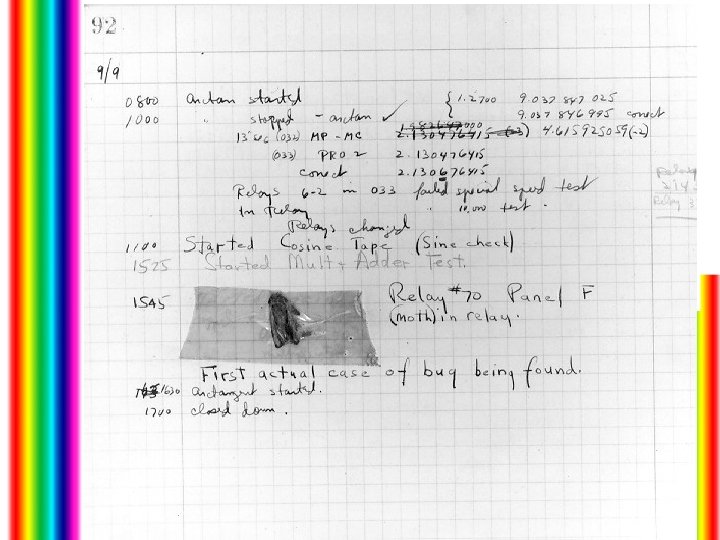 92
9/9
0800 Antan started
1000 " stopped - antan ✓ { 1.2700 9.037 847 025
9.037 846 995 conect
13"uc (032) MP - MC 2.130476415 (-3) 4.615925059(-2)
(033) PRO 2 2.130476415
conect 2.130676415
Relays 6-2 in 033 failed special speed test
In Relay " 10,000 test .
Relays changed
1100 Started Cosine Tape (Sine check)
1525 Started Mult + Adder Test.
1545 Relay #70 Panel F
(moth) in relay.
First actual case of bug being found.
1630 antangent started.
1700 closed down .